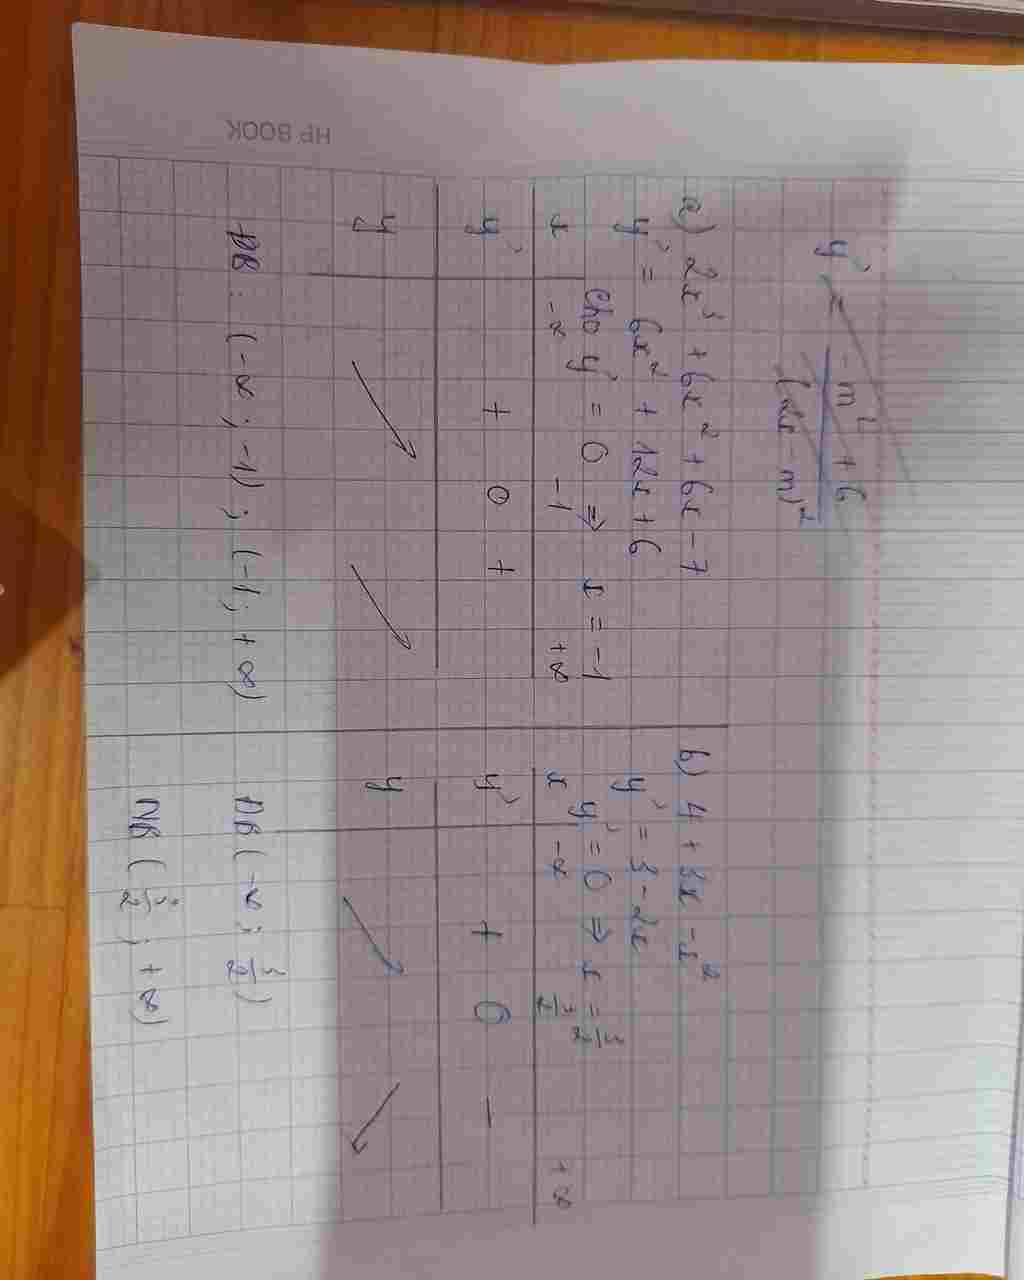 HP BOOK
y' = -m² + 6 / (2x - m)²
a) 2x³ + 6x² + 6x - 7
y' = 6x² + 12x + 6
Cho y' = 0 ⇒ x = -1
x -∞ -1 +∞
y' + 0 +
y
ĐB : (-∞ ; -1) ; (-1 ; +∞)
b) 4 + 3x - x²
y' = 3 - 2x
y' = 0 ⇒ x = 3/2
x -∞ 3/2 +∞
y' + 0 -
y
ĐB (-∞ ; 3/2)
NB (3/2 ; +∞)